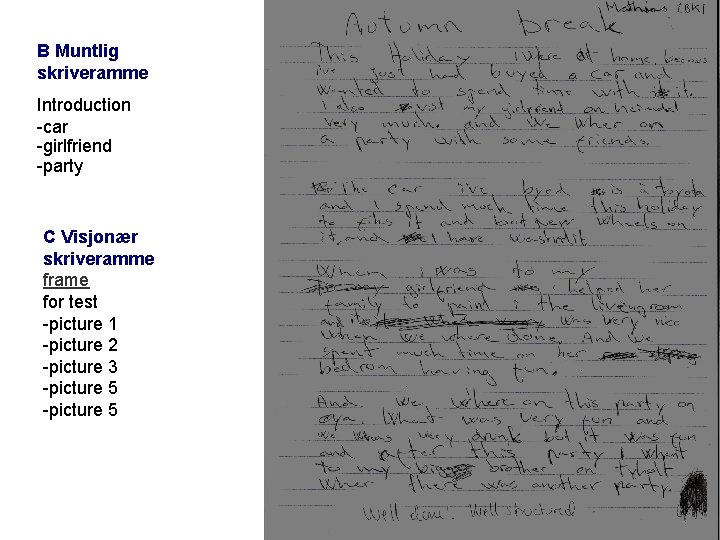 B Muntlig
skriveramme
Introduction
-car
-girlfriend
-party
C Visjonær
skriveramme
frame
for test
-picture 1
-picture 2
-picture 3
-picture 5
-picture 5
Mathias (BK)
Autumn break
This Holiday I were at home, becaus
i've just had buyed a car and
wanted to spend time with it.
I also visit my girlfriend on heimdal
very much. and we wher on
a party with some friends.
The car i've byed is a toyota
and I spend much time this holiday
to fiks it and but new wheels on
it, and I have
When i was to my
girlfriend i helped her
family to paint i the livingroom
and it was very nice
when we where done. And we
spent much time on her
bedrom having fun.
And we where on this party on
øya. What was very fun and
we was very drunk but it was fun
and after this party I whent
to my brother on tyholt
wher there was another party.
Well done! Well structured